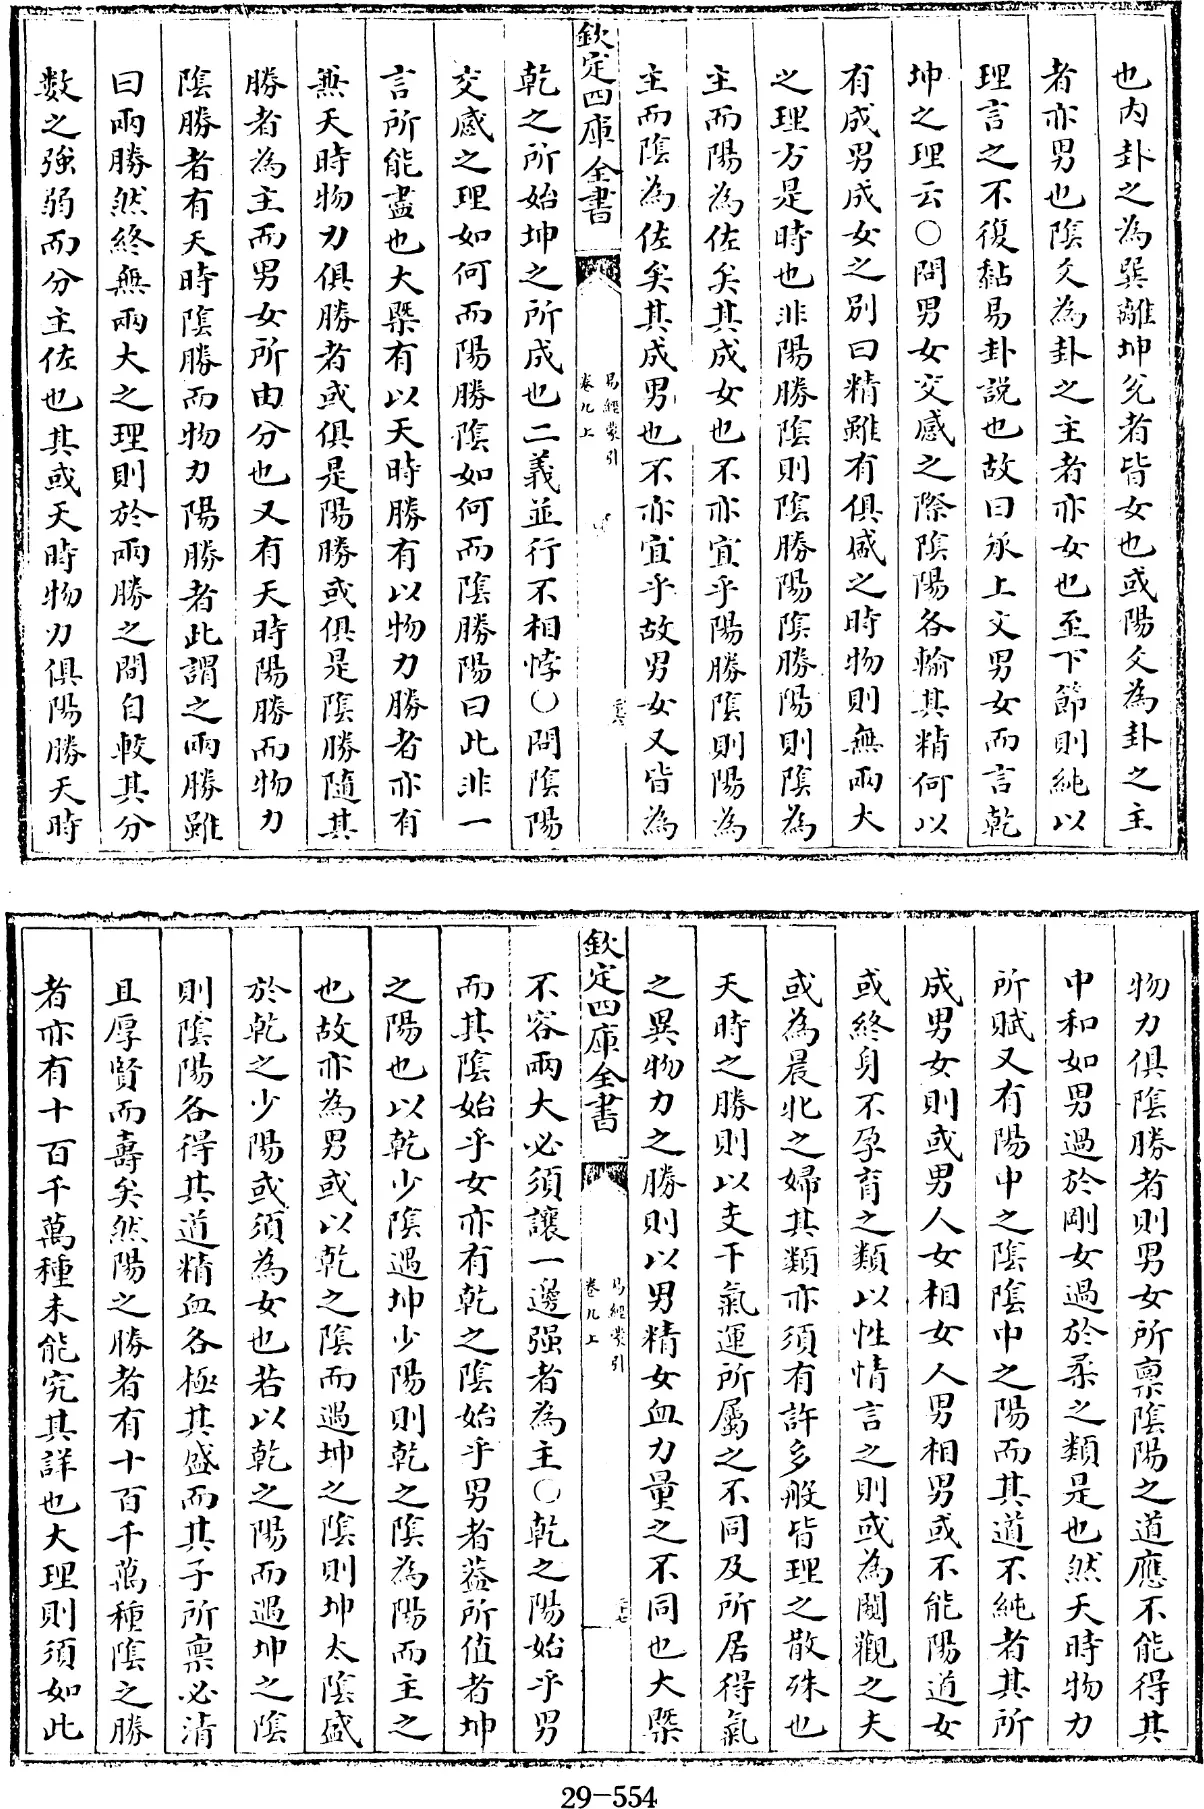 也内卦之為巽離坤兊者皆女也或陽爻為卦之主
者亦男也陰爻為卦之主者亦女也至下節則純以
理言之不復黏易卦說也故曰承上文男女而言乾
坤之理云○問男女交感之際陰陽各輸其精何以
有成男成女之別曰精雖有俱感之時物則無兩大
之理方是時也非陽勝陰則陰勝陽陰勝陽則陰為
主而陽為佐矣其成女也不亦宜乎陽勝陰則陽為
主而陰為佐矣其成男也不亦宜乎故男女又皆為
欽定四庫全書
易經蒙引
卷九上
乾之所始坤之所成也二義並行不相悖○問陰陽
交感之理如何而陽勝陰如何而陰勝陽曰此非一
言所能盡也大槩有以天時勝有以物力勝者亦有
兼天時物力俱勝者或俱是陽勝或俱是陰勝隨其
勝者為主而男女所由分也又有天時陽勝而物力
陰勝者有天時陰勝而物力陽勝者此謂之兩勝雖
曰兩勝然終無兩大之理則於兩勝之間自較其分
數之強弱而分主佐也其或天時物力俱陽勝天時
物力俱陰勝者則男女所禀陰陽之道應不能得其
中和如男過於剛女過於柔之類是也然天時物力
所賦又有陽中之陰陰中之陽而其道不純者其所
成男女則或男人女相女人男相男或不能陽道女
或終身不孕育之類以性情言之則或為闚觀之夫
或為晨牝之婦其類亦須有許多般皆理之散殊也
天時之勝則以支干氣運所屬之不同及所居得氣
之異物力之勝則以男精女血力量之不同也大槩
欽定四庫全書
易經蒙引
卷九上
不容兩大必須讓一邊强者為主○乾之陽始乎男
而其陰始乎女亦有乾之陰始乎男者葢所值者坤
之陽也以乾少陰遇坤少陽則乾之陰為陽而主之
也故亦為男或以乾之陰而遇坤之陰則坤太陰盛
於乾之少陽或須為女也若以乾之陽而遇坤之陰
則陰陽各得其道精血各極其盛而其子所禀必清
且厚賢而壽矣然陽之勝者有十百千萬種陰之勝
者亦有十百千萬種未能究其詳也大理則須如此
29-554